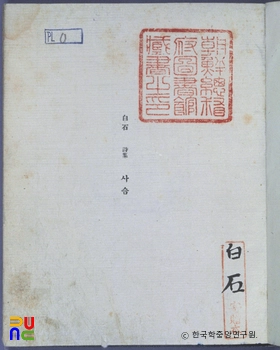 PL 0
朝鮮總督
府圖書館
藏書之印
白石 詩集 사슴
白石
ⓒ 한국학중앙연구원